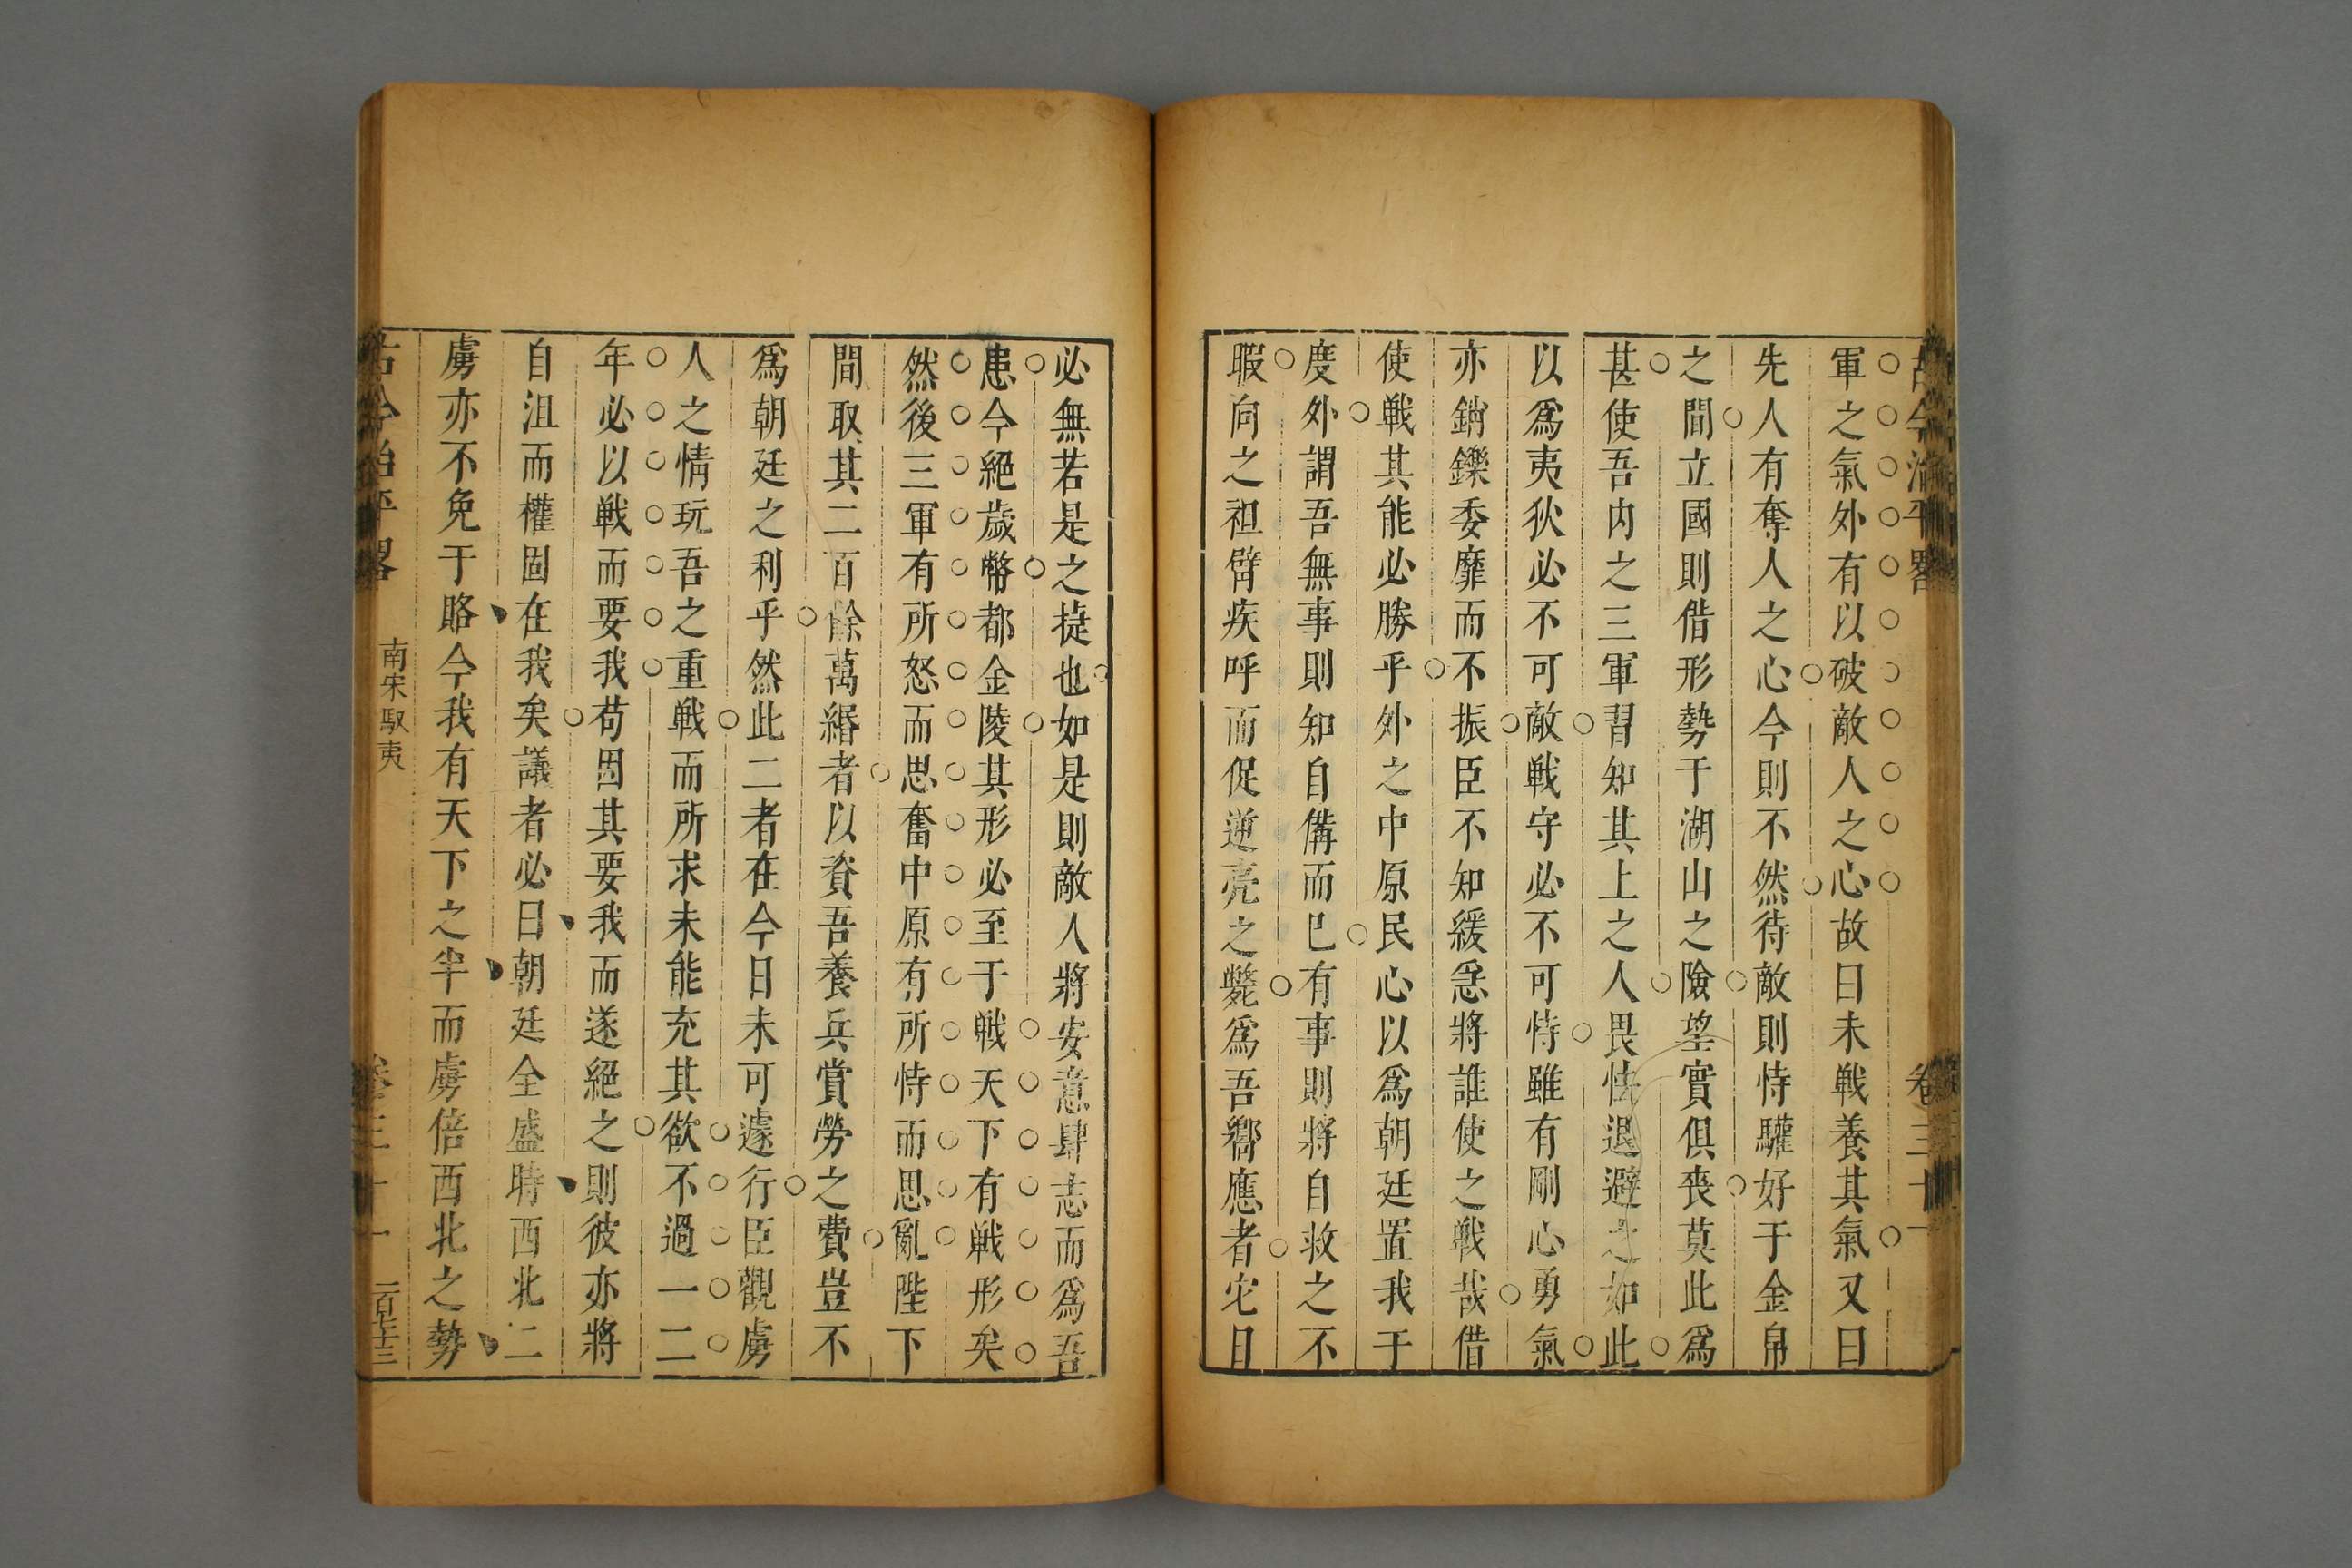 古今治平畧 卷三十一
軍之氣外有以破敵人之心故曰未戦養其氣又曰
先人有奪人之心今則不然待敵則恃驩好于金帛
之間立國則借形勢于湖山之險望實俱喪莫此爲
甚使吾内之三軍習知其上之人畏怯退避之如此
以爲夷狄必不可敵戦守必不可恃雖有剛心勇氣
亦銷鑠委靡而不振臣不知緩急將誰使之戦哉借
使戦其能必勝乎外之中原民心以爲朝廷置我于
度外謂吾無事則知自備而巳有事則將自救之不
暇向之袒臂疾呼而促逆亮之斃爲吾嚮應者它日
必無若是之捷也如是則敵人將安意肆志而爲吾
患今絕歲幣都金陵其形必至于戦天下有戦形矣
然後三軍有所怒而思奮中原有所恃而思亂陛下
間取其二百餘萬緡者以資吾養兵賞勞之費豈不
爲朝廷之利乎然此二者在今日未可遽行臣觀虜
人之情玩吾之重戦而所求未能充其欲不過一二
年必以戦而要我苟因其要我而遂絕之則彼亦將
自沮而權固在我矣議者必曰朝廷全盛時西北二
虜亦不免于賂今我有天下之半而虜倍西北之勢
古今治平畧 南宋馭夷 卷三十一 一百七十三